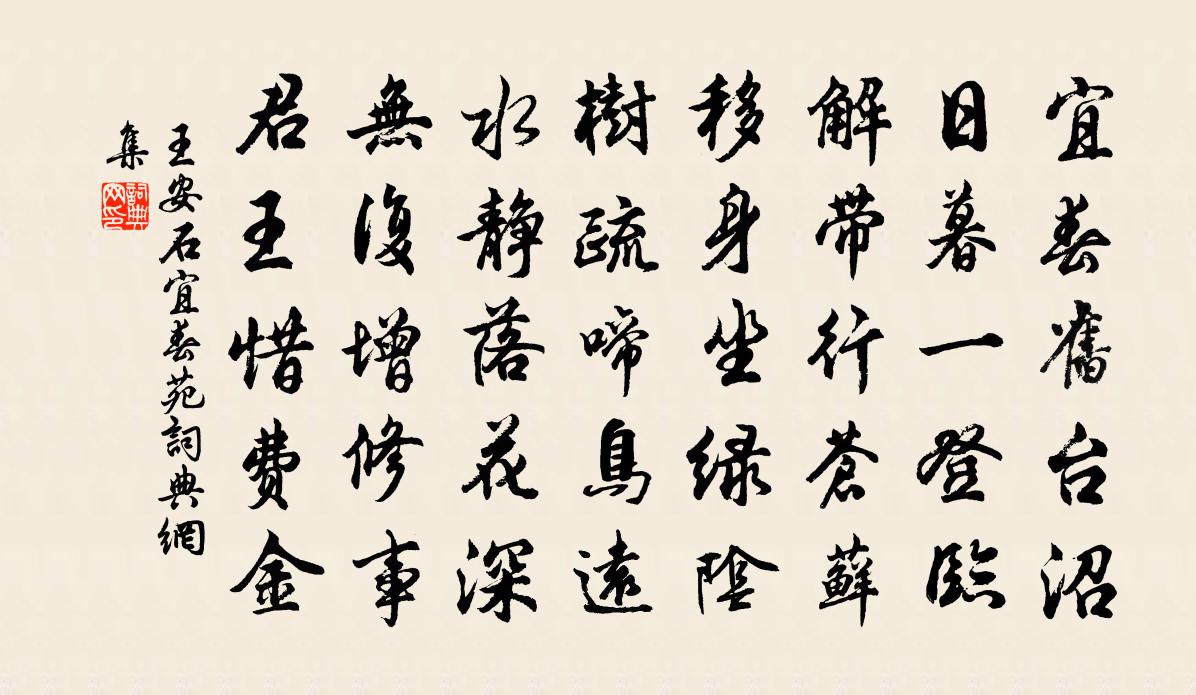 宜春舊台沼
日暮一登臨
解帶行蒼蘚
移身坐綠陰
樹疏啼鳥遠
水靜落花深
無復增修事
君王惜費金
王安石宜春苑詞典網
集
詞典
网印